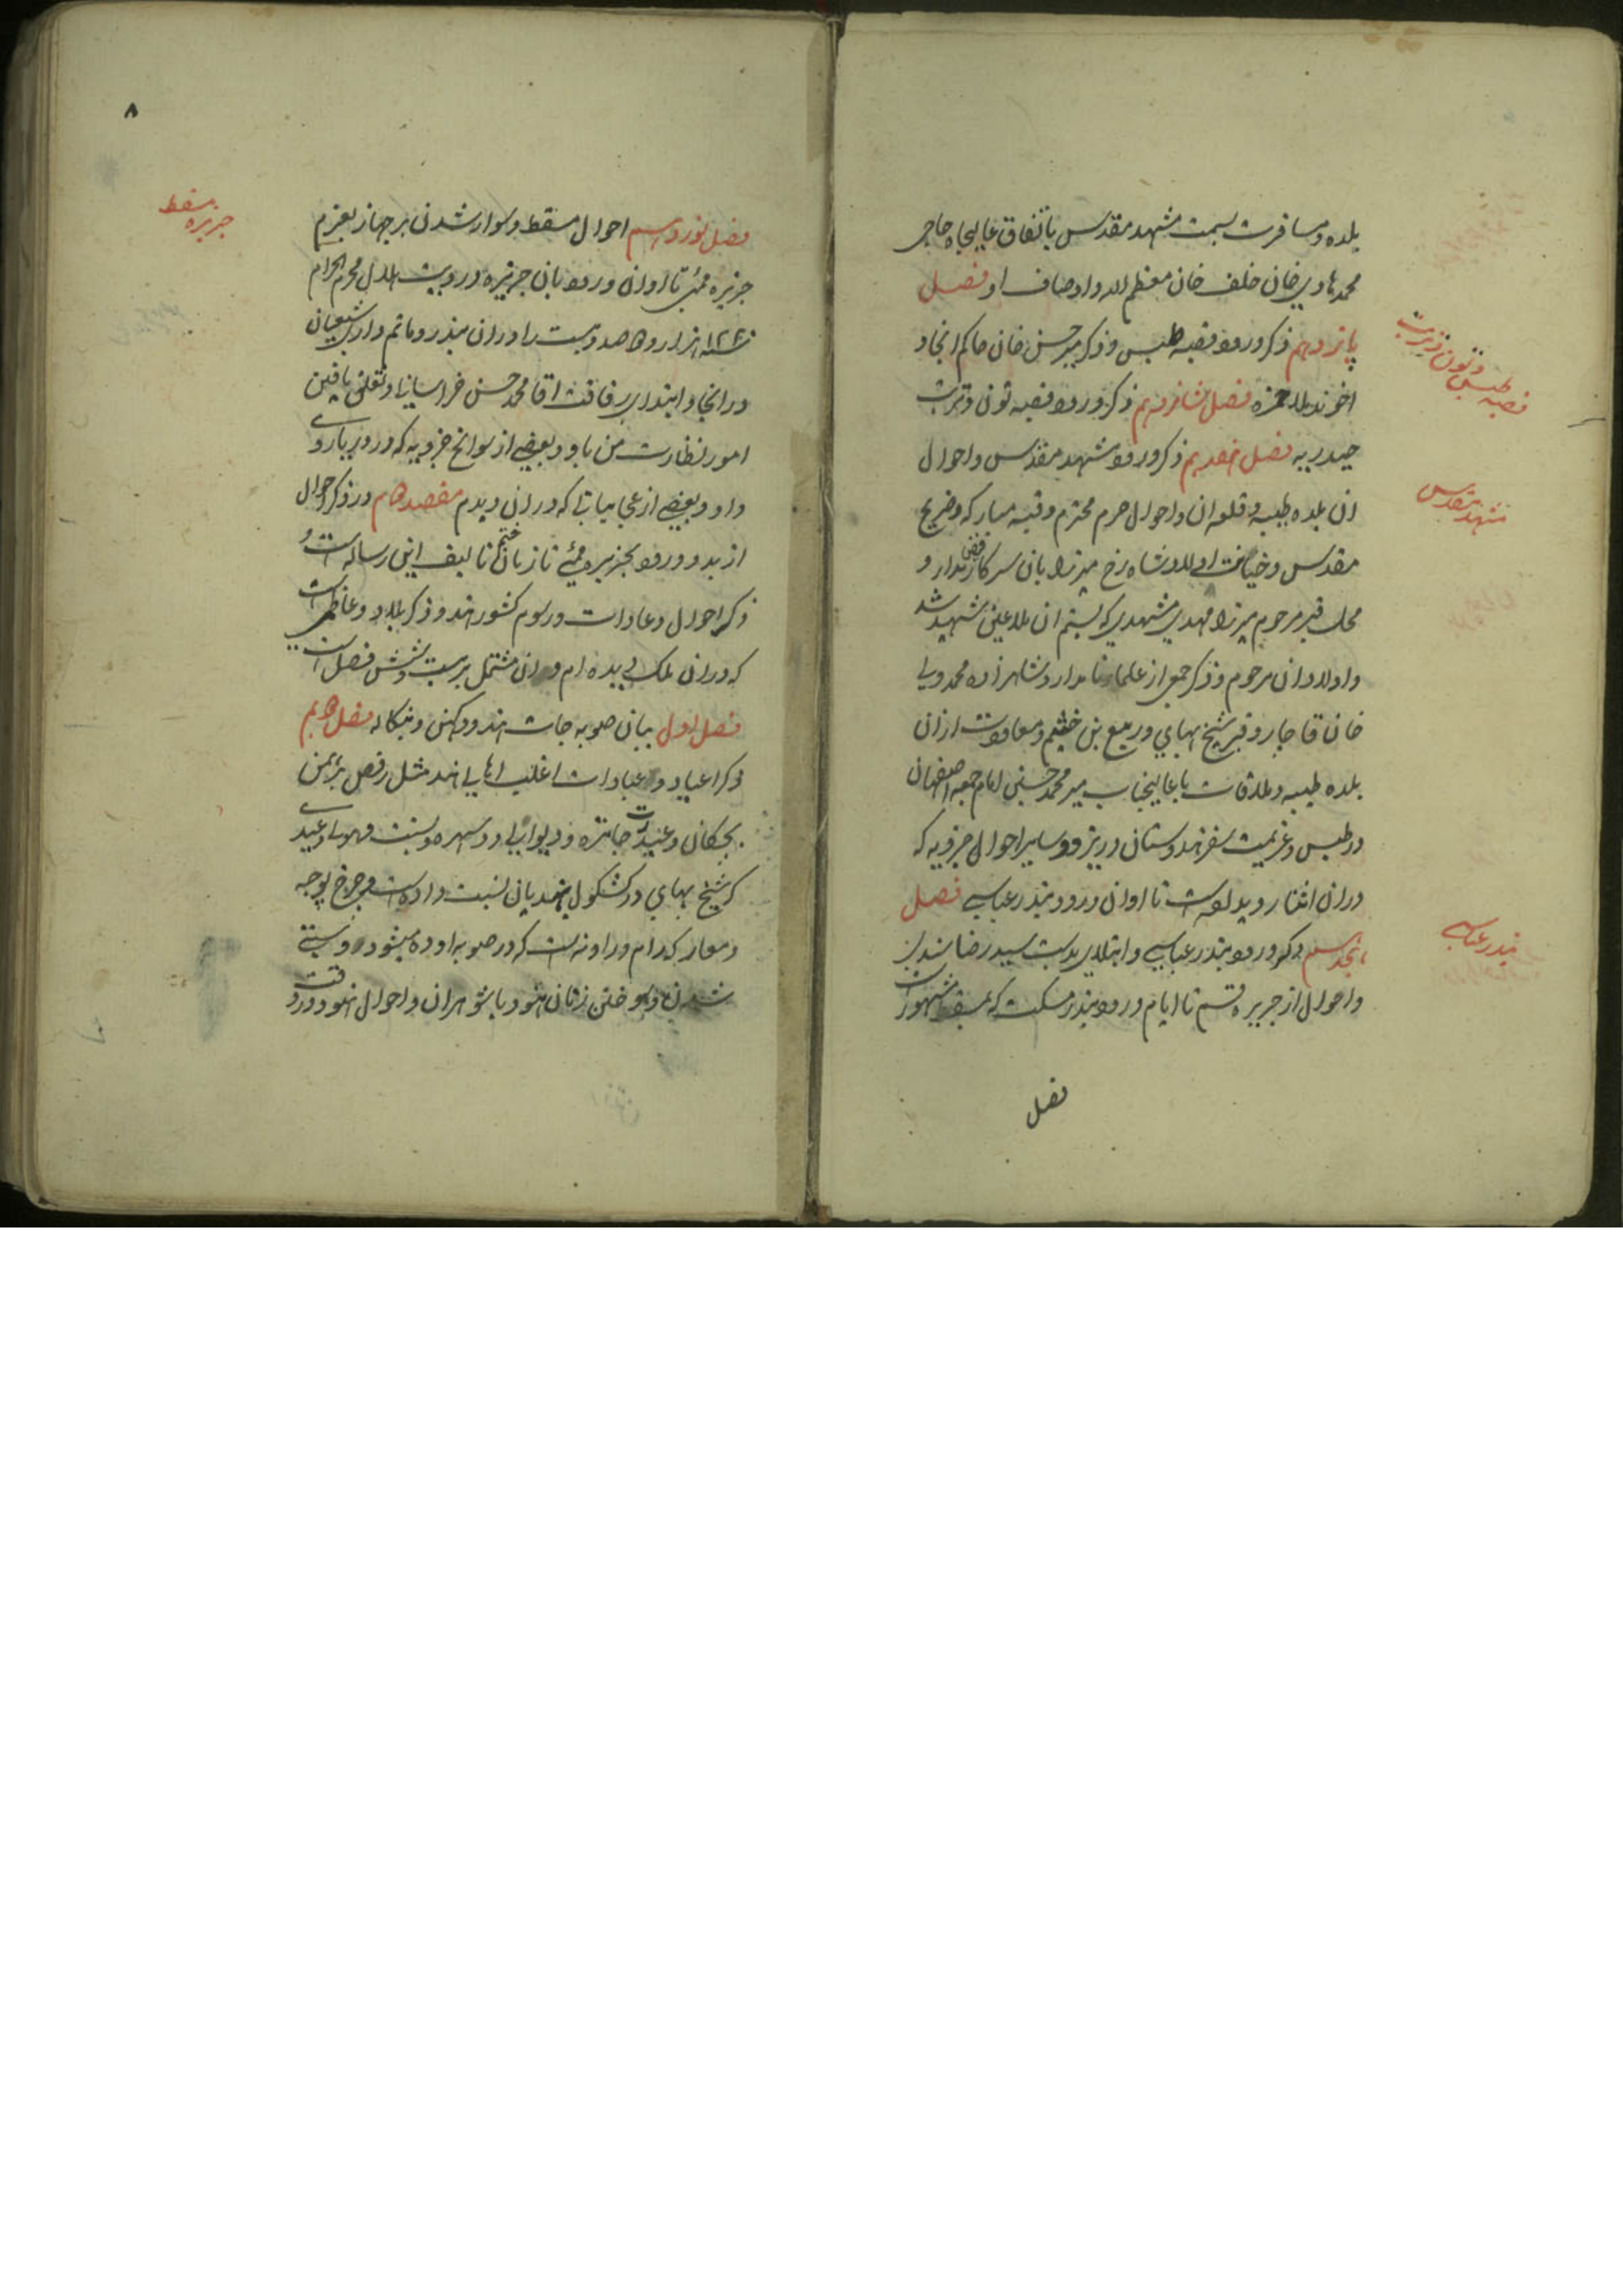 بلده و مسافرت بسمت مشهد مقدس باتفاق عالیجاه حاجی
محمد هادی خان خلف خان معظم الیه و اوصاف او فصل
پانزدهم ذکر ورود قصبه طبس و ذکر میر حسن خان حاکم آنجا و
اخوند ملا حمزه فصل شانزدهم ذکر ورود قصبه تون و تربت
حیدریه فصل هفدهم ذکر ورود مشهد مقدس و احوال
ان بلده طیبه و قلعه ان و احوال حرم محترم و قبه مبارکه و ضریح
مقدس و خیانت اولاد شاهرخ میرزا بان سرکار فیض مدار و
محل قبر مرحوم میرزا مهدی مشهدی که بستم ان ملاعین شهید شد
و اولاد ان مرحوم و ذکر جمعی از علماء نامدار و شاهزاده محمد ولی
خان قاجار و قبر شیخ بهایی و ربیع بن خثیم و معاودت از ان
بلده طیبه و ملاقات با عالیجناب میر محمد حسین امام جمعه اصفهان
در طبس و عزیمت سفر هندوستان در یزد و سایر احوال جزویه که
دران اثنا روی داده است تا اوان ورود بندر عباسی فصل
هجدهم ذکر ورود بندر عباسی و ابتلای بدست سید رضا
و احوال از جزیره قشم تا ایام ورود بندر مسکت که بمسقط مشهور است
فصل
قصبه طبس و تون و تربت
مشهد مقدس
بندر عباسی
۸
فصل نوزدهم احوال مسقط و سوار شدن بر جهاز بعزم
جزیره ممبئی تا اوان ورود بان جزیره و رویت هلال محرم الحرام
سنه ۱۲۲۰ هزار و دو صد و بیست را دران بندر و ماتم داری شیعیان
در انجا و ابتدای رفاقت اقا محمد حسن خراسانی با و تعلق یافتن
امور نظارت من باو و بعضی از سوانح جزویه که در دریا روی
داد و بعضی از عجایباتی که دران دیدم مقصد دوم در ذکر احوال
از بدو ورود بجزیره ممبئی تا زمان ختم تالیف این رساله است و
ذکر احوال و عادات و رسوم کشور هند و ذکر بلاد و عاظمی است
که دران ملک دیده ام و ان مشتمل بر بیست و شش فصل است
فصل اول بیان صوبه جات هند و دکهن و بنگاله فصل دویم
ذکر اعیاد و عبادات اغلب اهالی هند مثل رقص برهمن
بچگان و عید جاتره و دیوالی و دسهره و بسنت و هولی و عیدی
که شیخ بهایی در کشکول بهندیان نسبت داده است و چرخ پوجه
و معارکه رام و راونه است که در صوبه اوده میشود و ستی
شدن و سوختن زنان هنود با شوهران و احوال هنود در وقت
جزیره مسقط